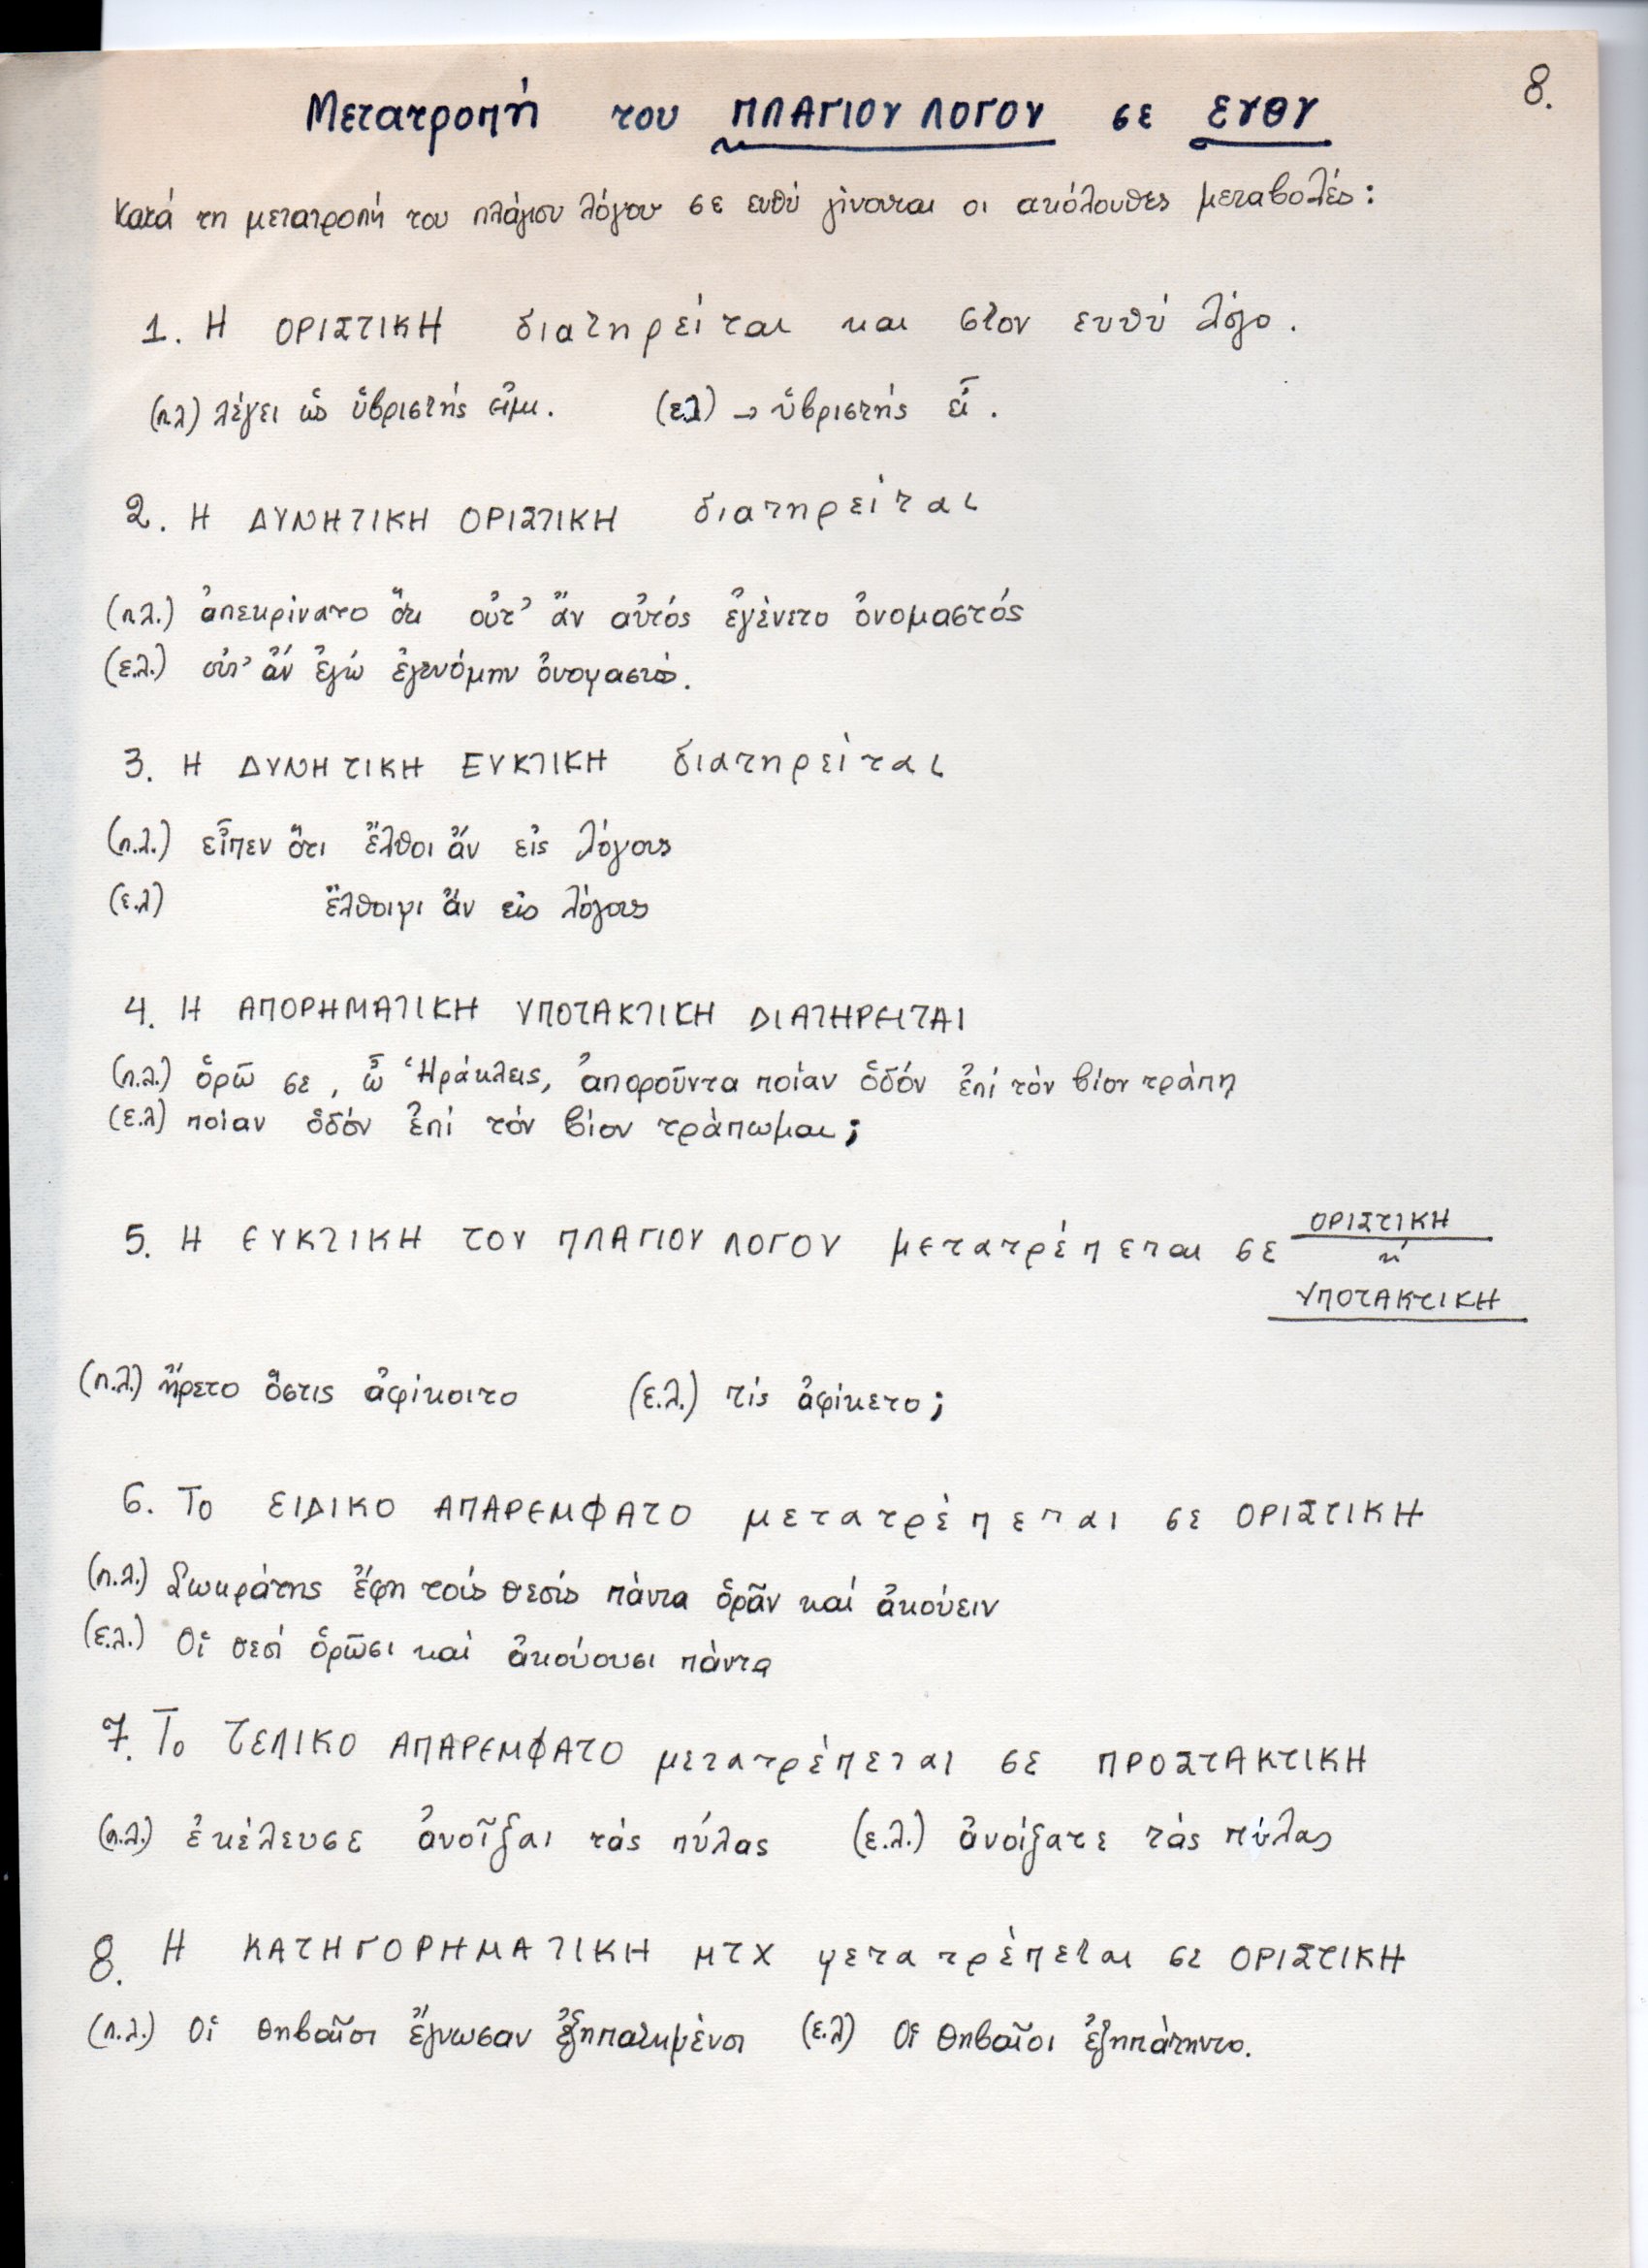 8.
Μετατροπή του ΠΛΑΓΙΟΥ ΛΟΓΟΥ σε ΕΥΘΥ
Κατά τη μετατροπή του πλάγιου λόγου σε ευθύ γίνονται οι ακόλουθες μεταβολές:
1. Η ΟΡΙΣΤΙΚΗ διατηρείται και στον ευθύ λόγο.
(π.λ) λέγει ὡς ὑβριστής εἰμι. (ε.λ) → ὑβριστής εἶ.
2. Η ΔΥΝΗΤΙΚΗ ΟΡΙΣΤΙΚΗ διατηρείται
(π.λ.) ἀπεκρίνατο ὅτι οὔτ' ἄν αὐτός ἐγένετο ὀνομαστός
(ε.λ.) οὔτ' ἄν ἐγώ ἐγενόμην ὀνομαστός.
3. Η ΔΥΝΗΤΙΚΗ ΕΥΚΤΙΚΗ διατηρείται
(π.λ.) εἶπεν ὅτι ἔλθοι ἄν εἰς λόγους
(ε.λ) ἔλθοιμι ἄν εἰς λόγους
4. Η ΑΠΟΡΗΜΑΤΙΚΗ ΥΠΟΤΑΚΤΙΚΗ ΔΙΑΤΗΡΕΙΤΑΙ
(π.λ.) ὁρῶ σε, ὦ Ἡράκλεις, ἀποροῦντα ποίαν ὁδόν ἐπί τόν βίον τράπῃ
(ε.λ) ποίαν ὁδόν ἐπί τόν βίον τράπωμαι;
5. Η ΕΥΚΤΙΚΗ ΤΟΥ ΠΛΑΓΙΟΥ ΛΟΓΟΥ μετατρέπεται σε ΟΡΙΣΤΙΚΗ
ή
ΥΠΟΤΑΚΤΙΚΗ
(π.λ.) ἤρετο ὅστις ἀφίκοιτο (ε.λ.) τίς ἀφίκετο;
6. Το ΕΙΔΙΚΟ ΑΠΑΡΕΜΦΑΤΟ μετατρέπεται σε ΟΡΙΣΤΙΚΗ
(π.λ.) Σωκράτης ἔφη τούς θεούς πάντα ὁρᾶν καί ἀκούειν
(ε.λ.) Οἱ θεοί ὁρῶσι καί ἀκούουσι πάντα
7. Το ΤΕΛΙΚΟ ΑΠΑΡΕΜΦΑΤΟ μετατρέπεται σε ΠΡΟΣΤΑΚΤΙΚΗ
(π.λ.) ἐκέλευσε ἀνοῖξαι τάς πύλας (ε.λ.) ἀνοίξατε τάς πύλας
8. Η ΚΑΤΗΓΟΡΗΜΑΤΙΚΗ ΜΤΧ μετατρέπεται σε ΟΡΙΣΤΙΚΗ
(π.λ.) Οἱ Θηβαῖοι ἔγνωσαν ἐξηπατημένοι (ε.λ) Οἱ Θηβαῖοι ἐξηπάτηντο.